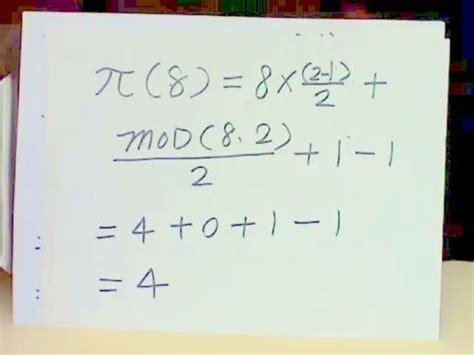 π(8) = 8×(2-1)/2 +
MOD(8.2)/2 + 1 - 1
= 4 + 0 + 1 - 1
= 4